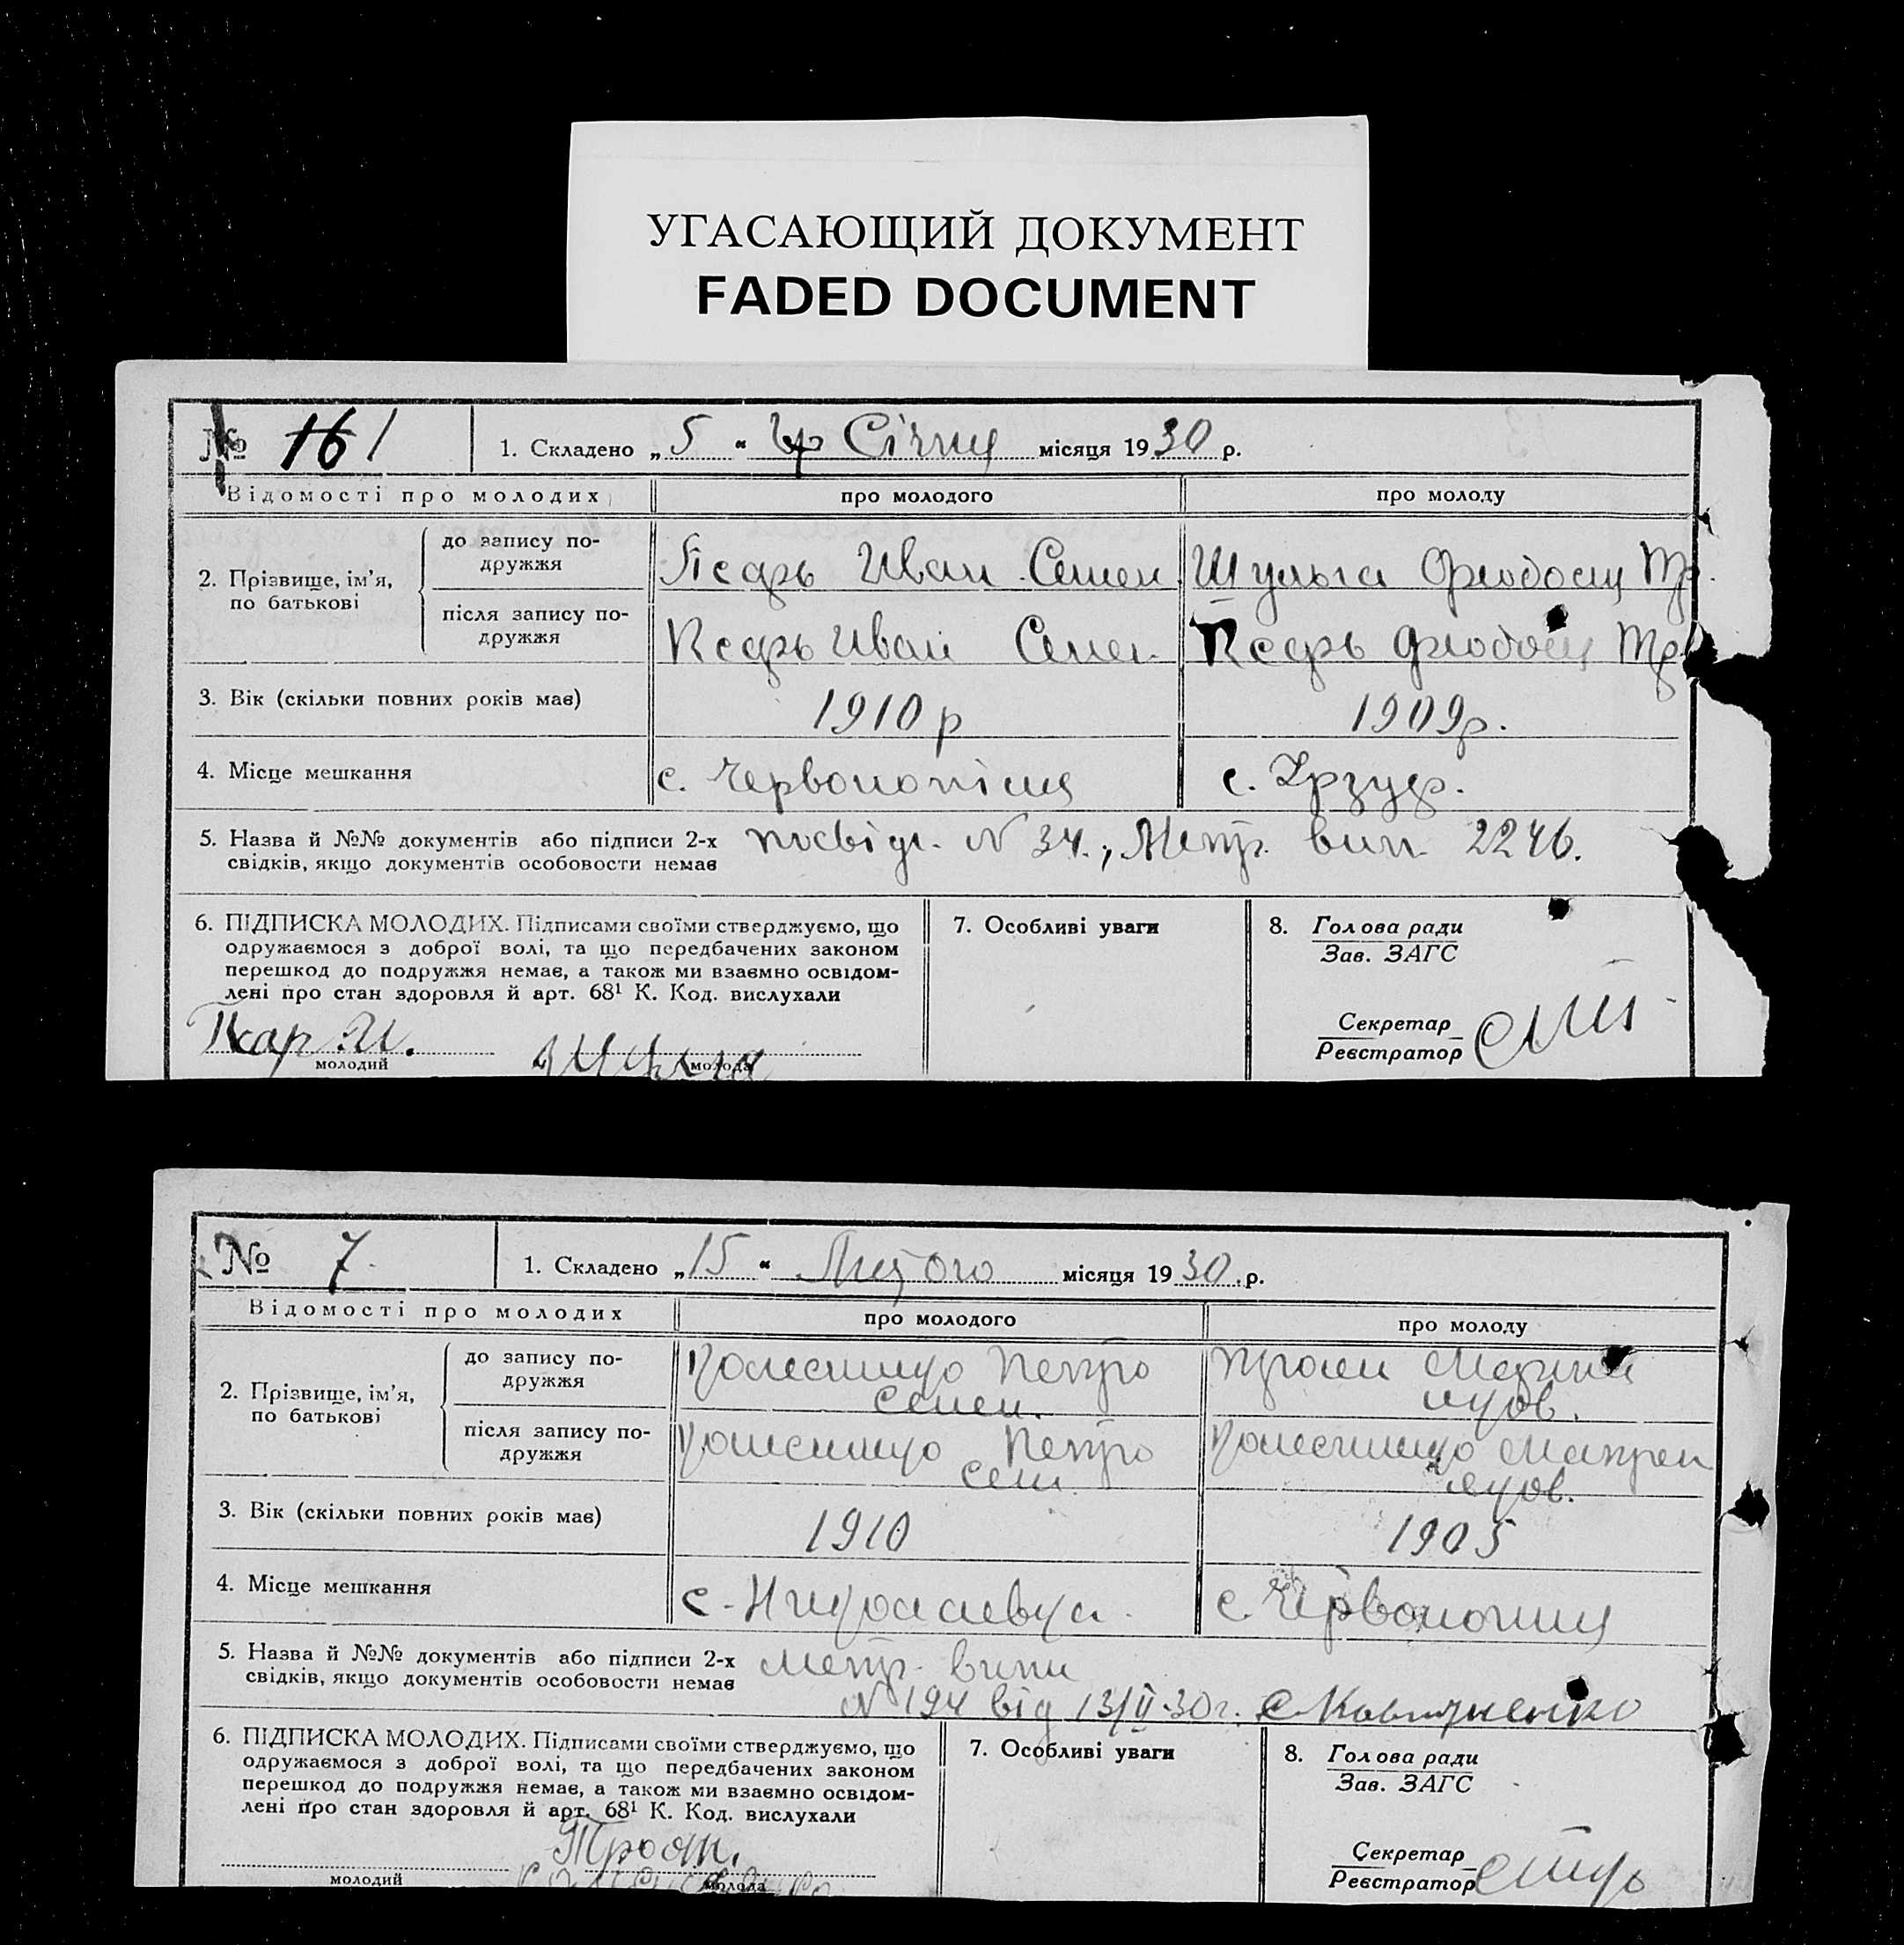 УГАСАЮЩИЙ ДОКУМЕНТ
FADED DOCUMENT
№ 161
1. Складено „5“ Січня місяця 1930 р.
Відомості про молодих
про молодого
про молоду
2. Прізвище, ім'я, по батькові
до запису по-
дружжя
Иван Семен.
Шульга Феодосія Тр.
після запису по-
дружжя
Иван Семен.
Феодосія Тр.
3. Вік (скільки повних років має)
1910 р
1909 р.
4. Місце мешкання
с.
с. Урзуф.
5. Назва й №№ документів або підписи 2-х
свідків, якщо документів особовости немає
посвідч. № 34., Метр. вип. 2246.
6. ПІДПИСКА МОЛОДИХ. Підписами своїми стверджуємо, що
одружаємося з доброї волі, та що передбачених законом
перешкод до подружжя немає, а також ми взаємно освідом-
лені про стан здоровля й арт. 68¹ К. Код. вислухали
молодий
молода
7. Особливі уваги
8. Голова ради
Зав. ЗАГС
Секретар
Реєстратор
№ 7
1. Складено „15“ Лютого місяця 1930 р.
Відомості про молодих
про молодого
про молоду
2. Прізвище, ім'я, по батькові
до запису по-
дружжя
Петро
Семен.
після запису по-
дружжя
Петро
Сем.
3. Вік (скільки повних років має)
1910
1905
4. Місце мешкання
с. Николаевка
с.
5. Назва й №№ документів або підписи 2-х
свідків, якщо документів особовости немає
Метр. випи
№ 194 від 13/II-30 г.
6. ПІДПИСКА МОЛОДИХ. Підписами своїми стверджуємо, що
одружаємося з доброї волі, та що передбачених законом
перешкод до подружжя немає, а також ми взаємно освідом-
лені про стан здоровля й арт. 68¹ К. Код. вислухали
молодий
молода
7. Особливі уваги
8. Голова ради
Зав. ЗАГС
Секретар
Реєстратор